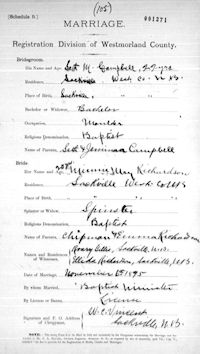 (105)
[Schedule
001271
MARRIAGE.
Registration Division of Westmorland County.
Bridegroom.
His Name and Age, Seth M. Campbell, yrs
Residence, Sackville West Co N.B.
Place of Birth, Sackville " " "
Bachelor or Widower, Bachelor
Occupation,
Religious Denomination, Baptist
Names of Parents, Seth & Jemima Campbell
Bride
Her Name and Age, Minnie May Richardson
Residence, Sackville West Co N.B.
Place of Birth, " " "
Spinster or Widow, Spinster
Religious Denomination, Baptist
Names of Parents, Chipman & Emma Richardson
Names and Residences of Witnesses, Sackville, N.B.
Richardson, Sackville, N.B.
Date of Marriage, November 6th 1895
By whom Married, Baptist Minister
By License or Banns, License
Signature and P. O. Address of Clergyman, W. C. Vincent
Sackville, N.B.